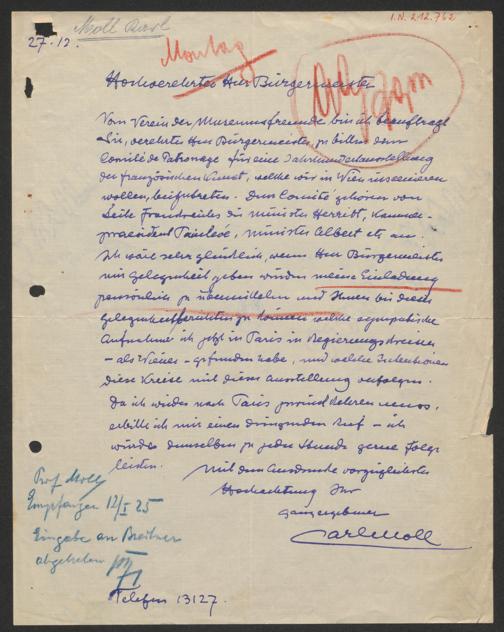 Moll Carl
I.N. 212.762
27-12.
Montag
Hochverehrter Herr Bürgermeister
Vom Verein der Museumsfreunde bin ich beauftragt
Sie, verehrter Herr Bürgermeister, zu bitten dem
Comité de Patronage für eine Jahrhundertausstellung
der französischen Kunst, welche wir in Wien inscenieren
wollen, beizutreten. Dem Comité gehören von
Seite Frankreichs die Minister Herriot, Kammer-
praesident Painlevé, Minister Albert etc an.
Ich wäre sehr glücklich, wenn Herr Bürgermeister
mir Gelegenheit geben würden meine Einladung
persönlich zu übermitteln und Ihnen bei dieser
Gelegenheit berichten zu können welche sympatische
Aufnahme ich jetzt in Paris in Regierungskreisen
- als Wiener - gefunden habe, und welche Intentionen
diese Kreise mit dieser Ausstellung verfolgen.
Da ich wieder nach Paris zurückkehren muss,
erbitte ich mir einen dringenden Ruf - ich
würde demselben zu jeder Stunde gerne Folge
leisten.
Mit dem Ausdrucke vorzüglichster
Hochachtung Ihr
ganz ergebener
Carl Moll
Prof Moll
Empfangen 12/I 25
Eingabe an Breitner
abgetreten
Telefon 13127.